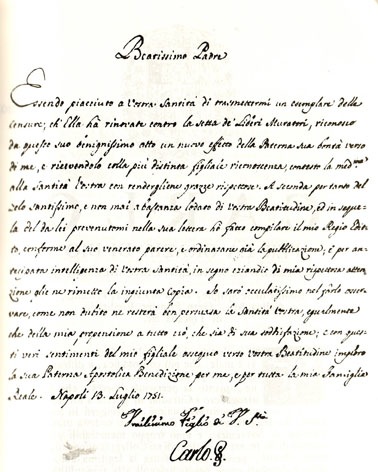 Beatissimo Padre
Essendo piacciuto a Vostra Santità di trasmettermi un esemplare della
censure, ch'Ella hà rinovate contro la setta de' Liberi Muratori, riconosco
da questo suo benignissimo atto un nuovo effetto della Paterna sua bontà verso
di me, e ricevendolo colla più distinta figliale riconoscenza, contesto la med.ma
alla Santità Vostra con rendergliene grazie rispettose. A seconda per tanto del
zelo santissimo, e non mai a bastanza lodato di Vostra Beatitudine, ed in segue-
la del da lei prevenutomi nella sua lettera hò fatto compilare il mio Regio Edit-
to, conforme al suo venerato parere, e ordinatane già la pubblicazione; e per an-
ticipata intelligenza di Vostra Santità, in segno eziandio di mia rispettosa atten-
zione glie ne rimetto la ingiunta copia. Io sarò oculatissimo nel farlo osser-
vare, come non dubito ne resterà ben persuasa la Santità Vostra, egualmente
che della mia propensione a tutto ciò, che sia di sua soddisfazione; e con ques-
ti veri sentimenti del mio figliale ossequio verso Vostra Beatitudine imploro
la sua Paterna Apostolica Benedizione per me, e per tutta la mia Famiglia
Reale. Napoli 13. Luglio 1751.
Umilissimo Figlio di V. S.tà
Carlo